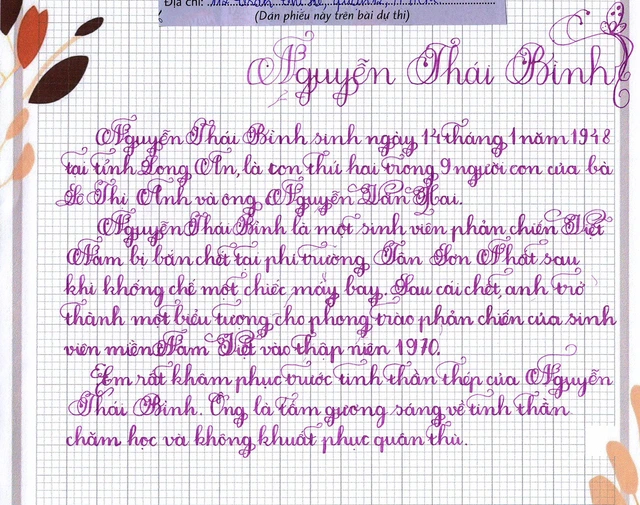 Địa chỉ:
(Dán phiếu này trên bài dự thi)
Nguyễn Thái Bình
Nguyễn Thái Bình sinh ngày 14 tháng 1 năm 1948
tại tỉnh Long An, là con thứ hai trong 9 người con của bà
Lê Thị Anh và ông Nguyễn Văn Hai.
Nguyễn Thái Bình là một sinh viên phản chiến Việt
Nam bị bắn chết tại phi trường Tân Sơn Nhất sau
khi khống chế một chiếc máy bay. Sau cái chết, anh trở
thành một biểu tượng cho phong trào phản chiến của sinh
viên miền Nam Việt vào thập niên 1970.
Em rất khâm phục trước tinh thần thép của Nguyễn
Thái Bình. Ông là tấm gương sáng về tinh thần
chăm học và không khuất phục quân thù.